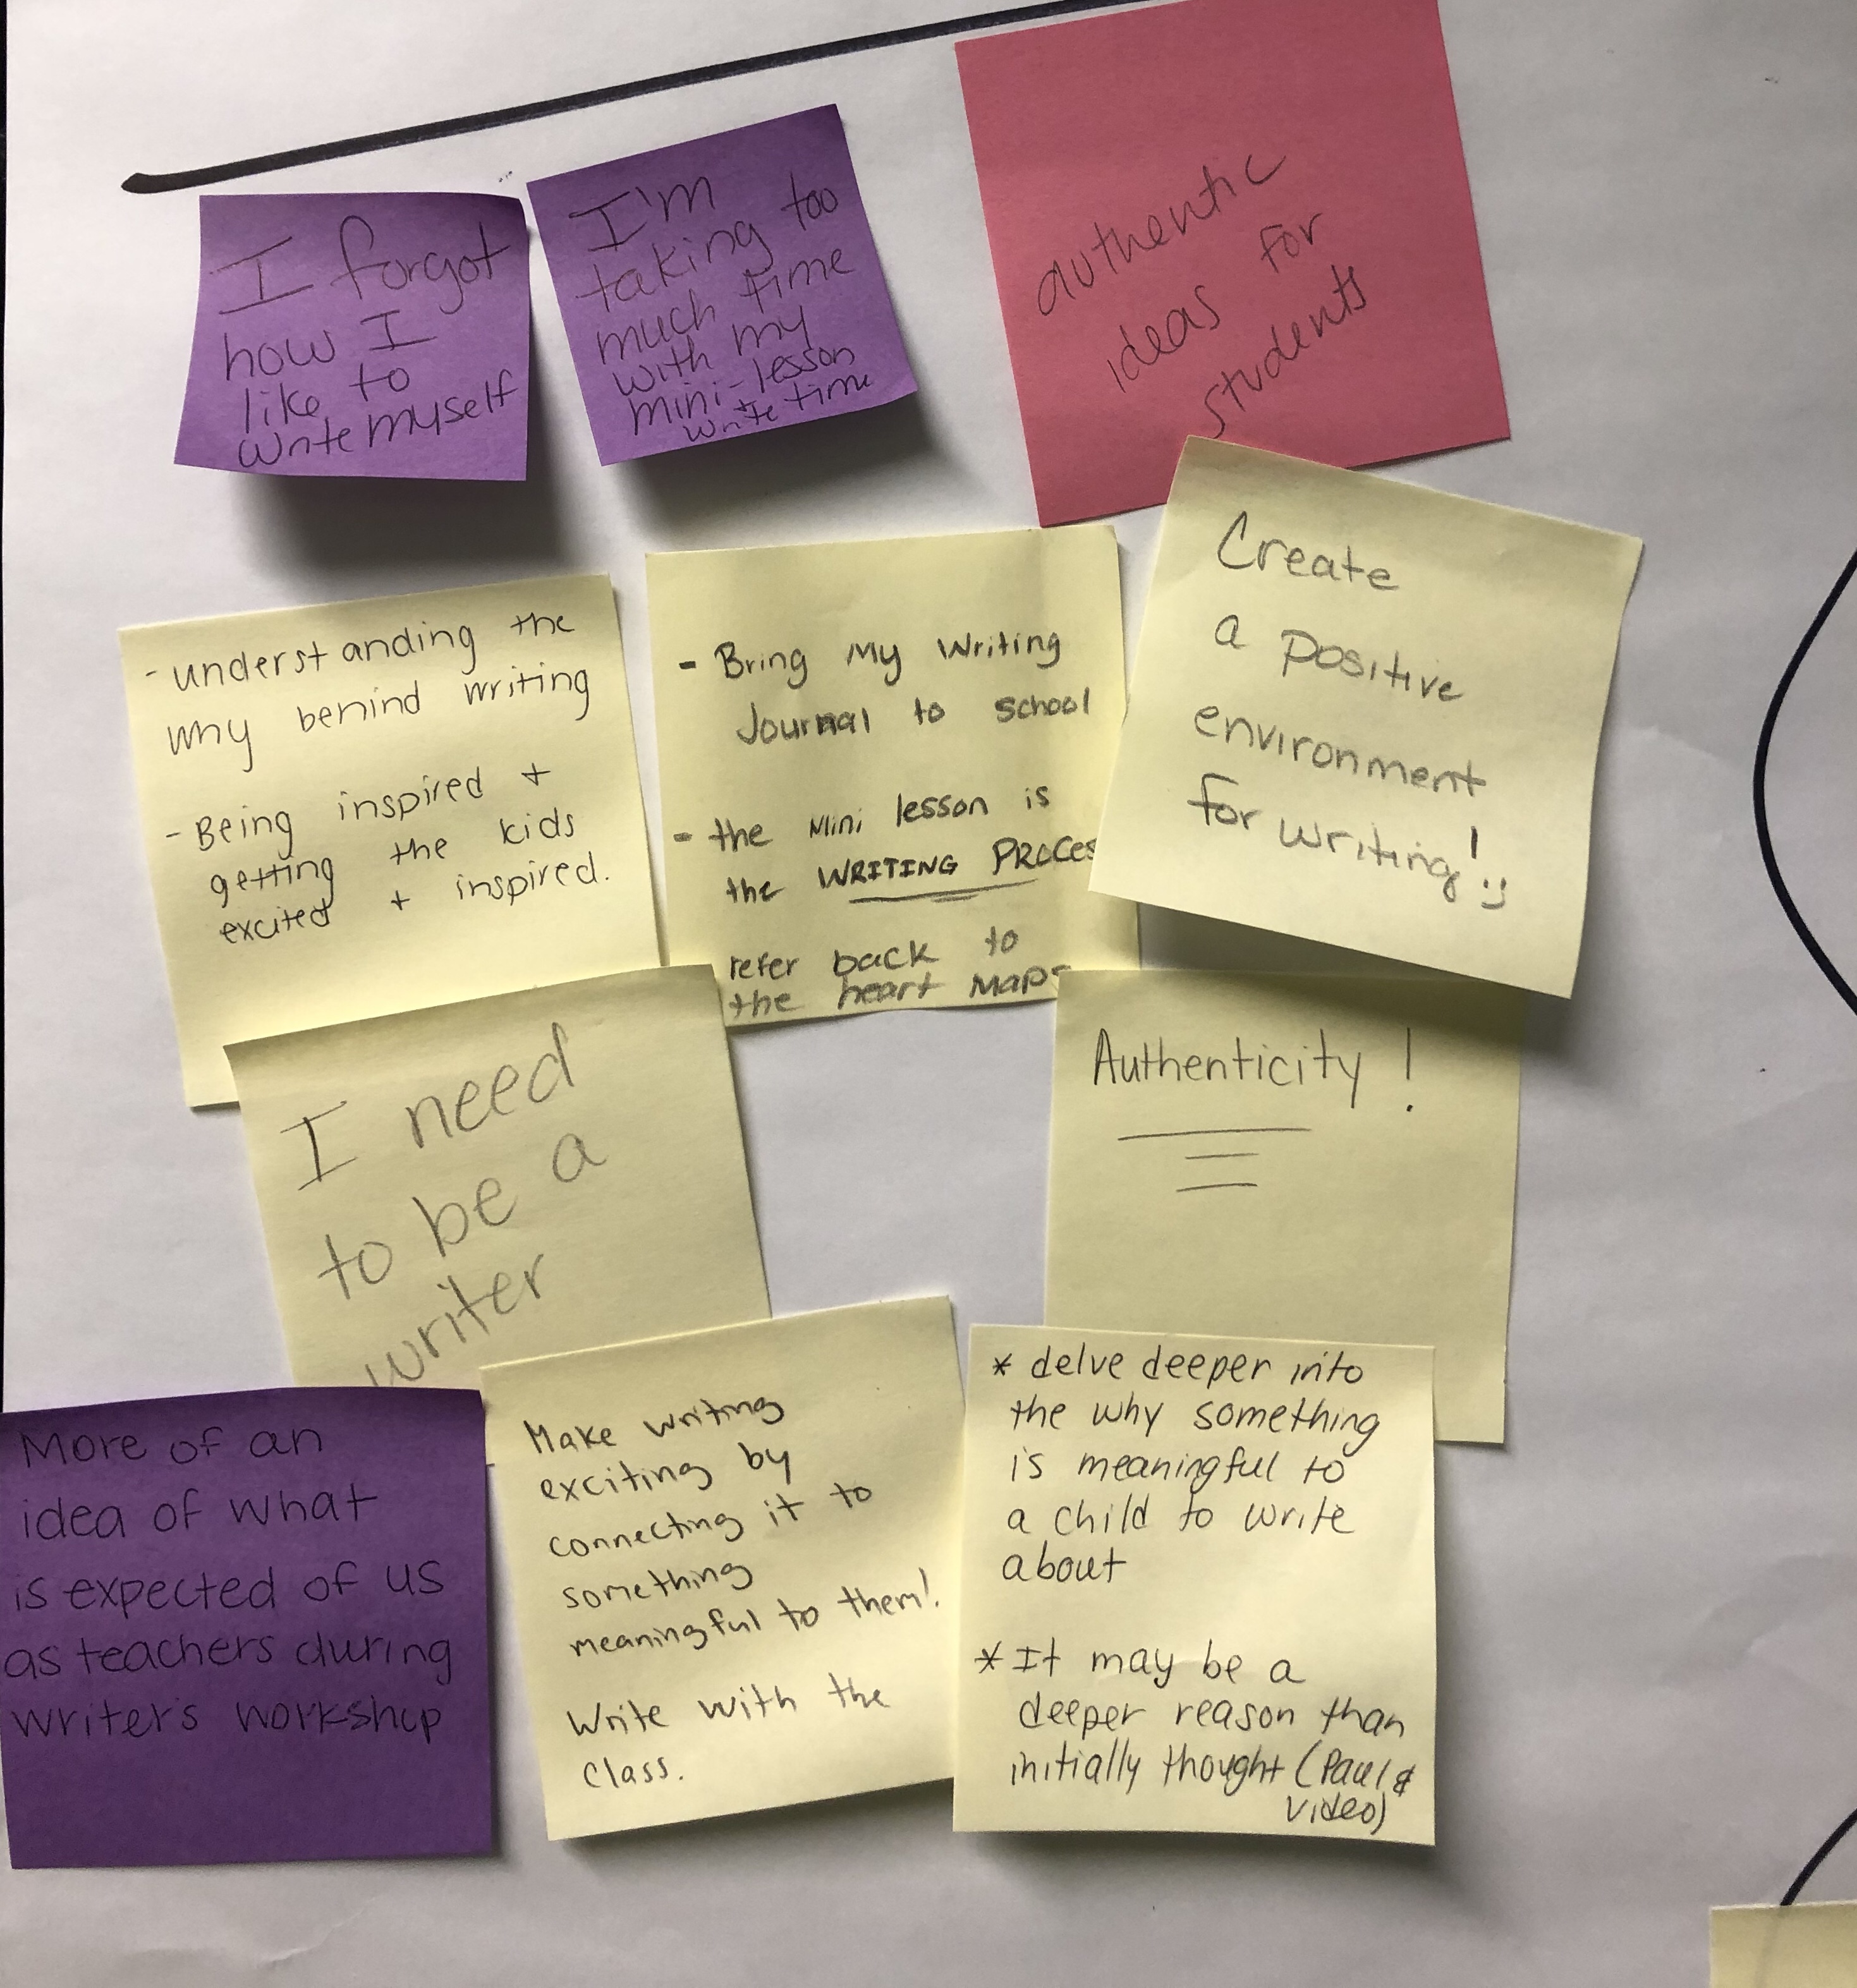 I forgot
how I
like to
write myself
I'm
taking too
much time
with my
mini-lesson
+
write time
authentic
ideas for
students
- understanding the
why behind writing
- Being inspired +
getting the kids
excited + inspired.
- Bring My Writing
Journal to school
- the Mini lesson is
the WRITING PROCES
refer back to
the heart Maps
Create
a positive
environment
for writing! :)
I need
to be a
writer
Authenticity!
More of an
idea of what
is expected of us
as teachers during
writer's workshop
Make writing
exciting by
connecting it to
something
meaningful to them!
Write with the
class.
* delve deeper into
the why something
is meaningful to
a child to write
about
* It may be a
deeper reason than
initially thought (Paul &
video)